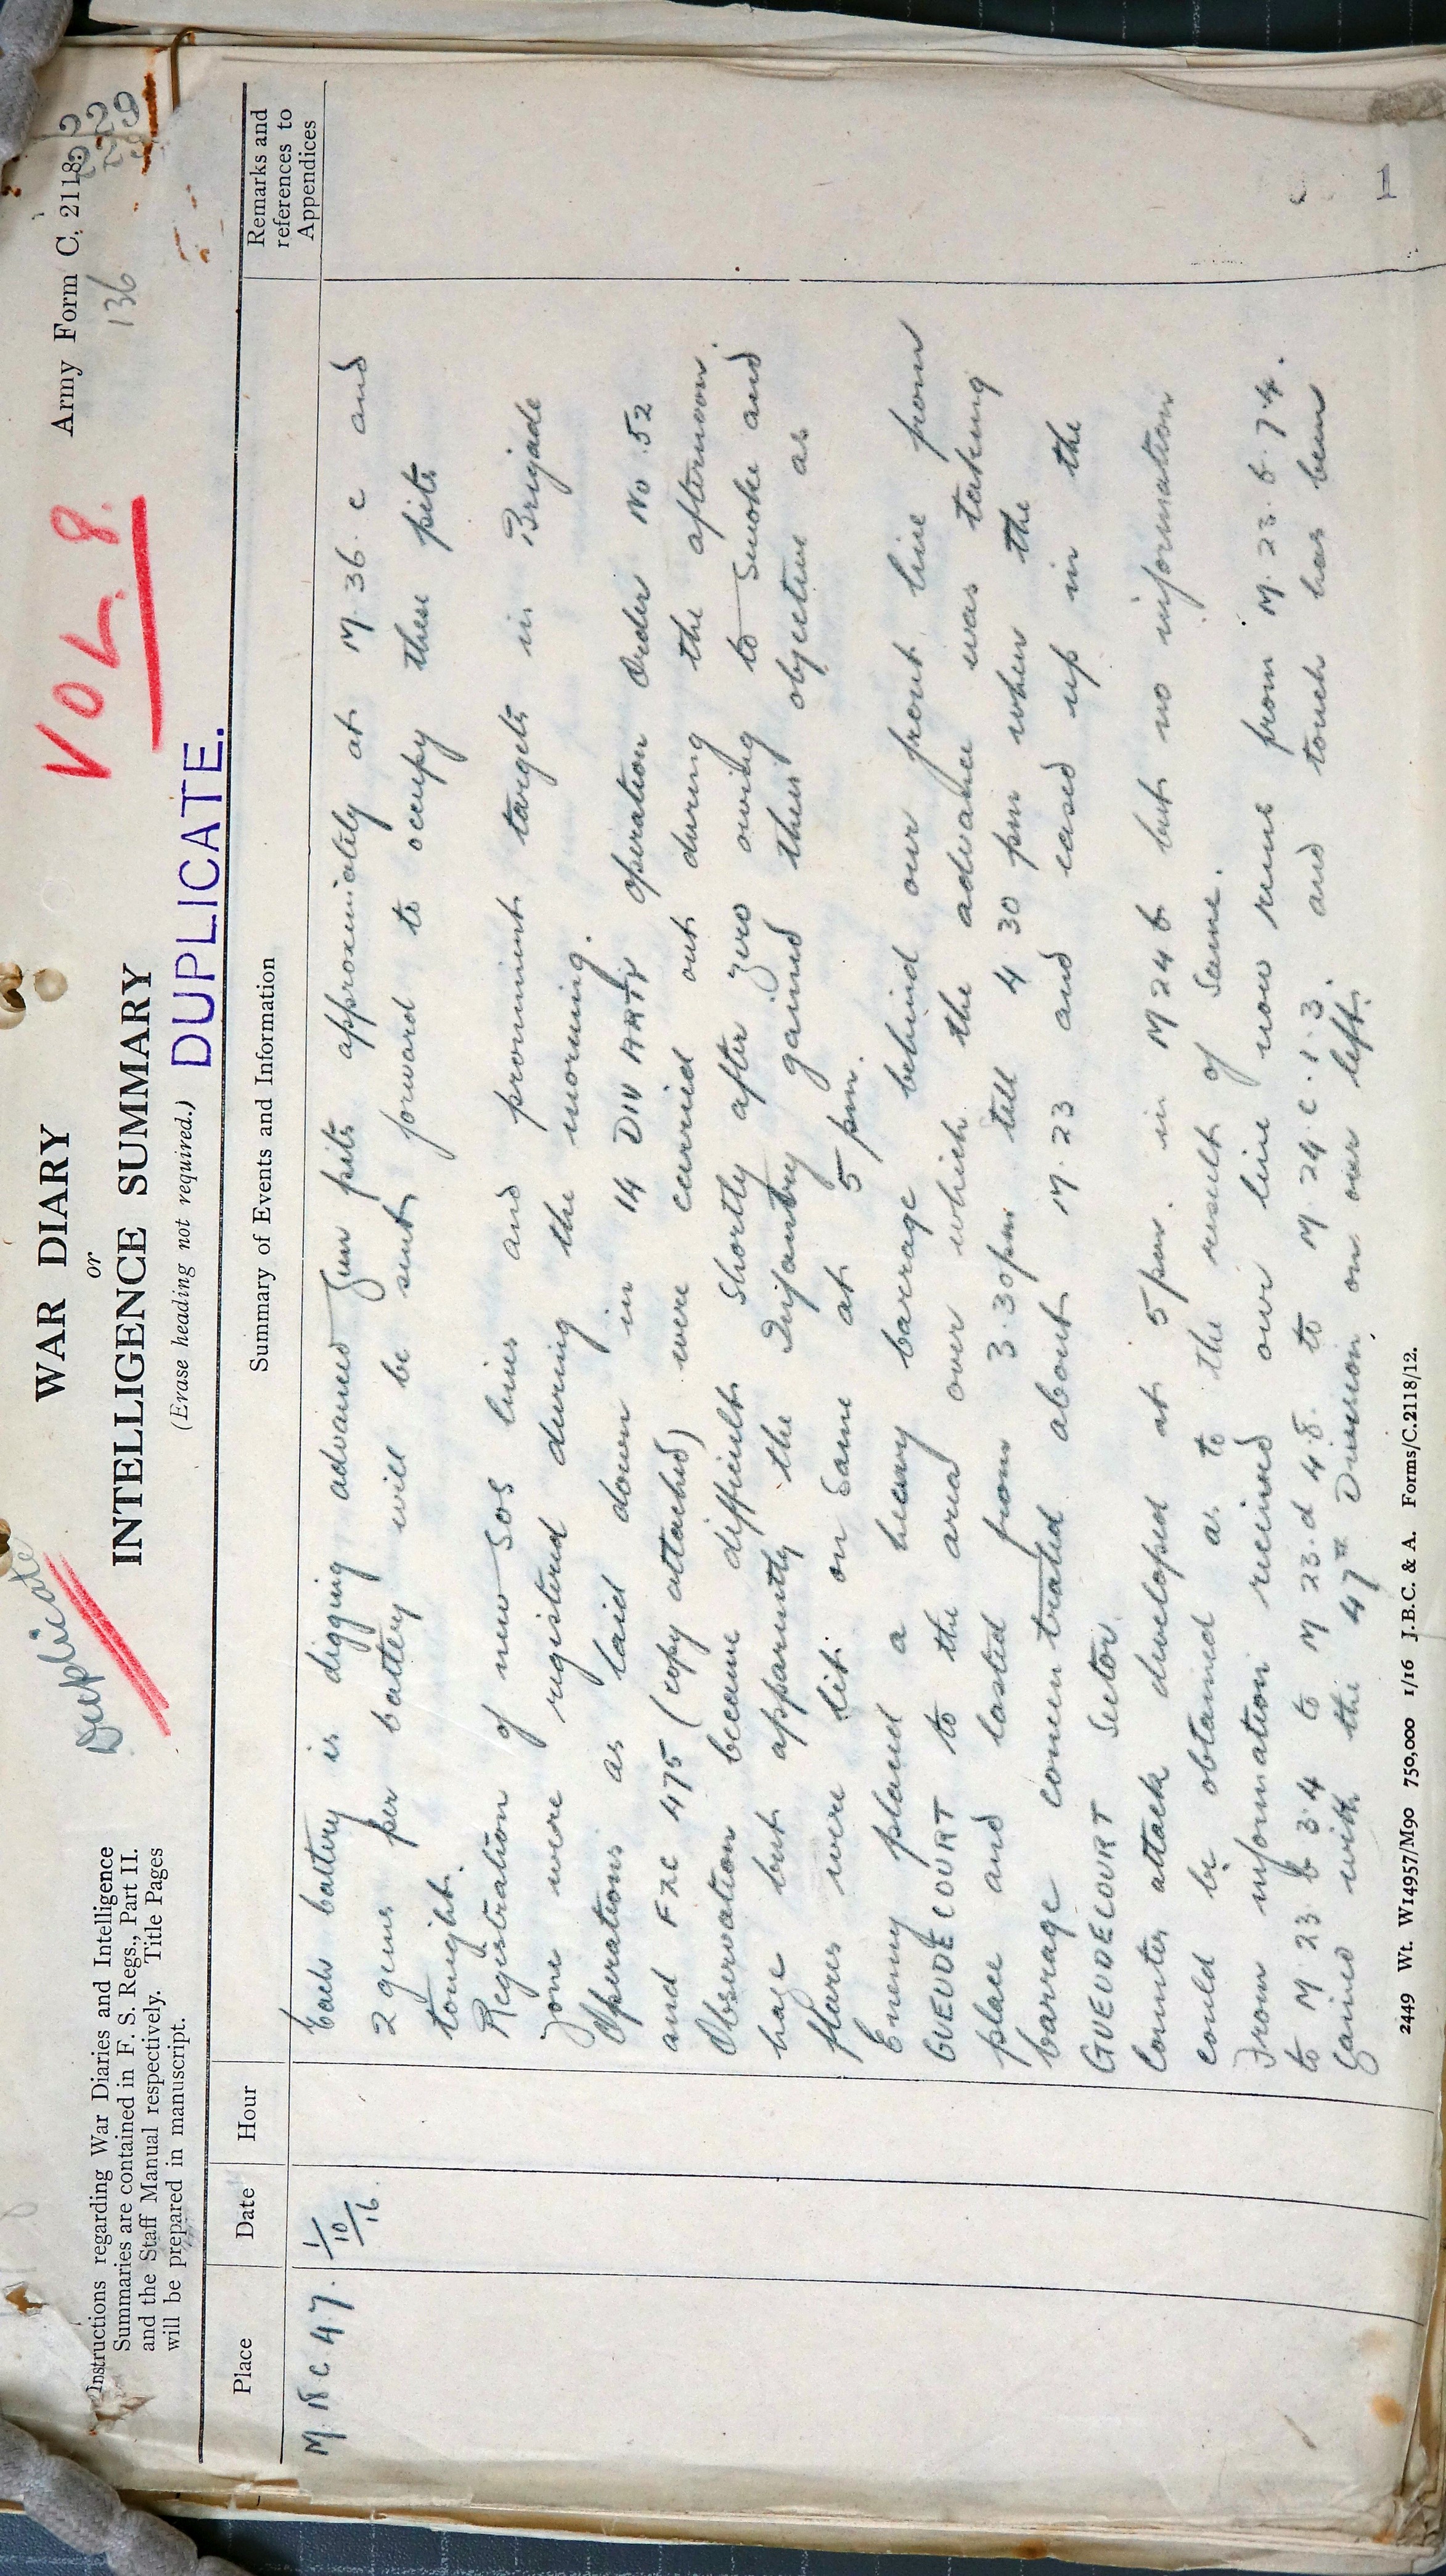 Duplicate
WAR DIARY
or
INTELLIGENCE SUMMARY
(Erase heading not required.)
DUPLICATE.
VOL. 8.
Army Form C. 2118.
229
229
136
Instructions regarding War Diaries and Intelligence
Summaries are contained in F. S. Regs., Part II.
and the Staff Manual respectively. Title Pages
will be prepared in manuscript.
Place
Date
Hour
Summary of Events and Information
Remarks and
references to
Appendices
1/10/16
Each battery is digging advanced gun pits approximately at M. 36. c and
2 guns per battery will be sent forward to occupy these pits
tonight.
Registration of new SOS lines and prominent targets in Brigade
Zone were registered during the morning.
Operations as laid down in 14 DIV ARTY Operation Order No 52
and 475 (copy attached) were carried out during the afternoon.
Observation became difficult shortly after zero owing to smoke and
haze but apparently the Infantry gained their objective as
flares were lit on same at 5 pm.
Enemy placed a heavy barrage behind our front line from
GUEUDECOURT to the area over which the advance was taking
place and lasted from 3.30 pm till 4 30 pm when the
barrage concentrated about M. 23 and eased up in the
GUEUDECOURT Sector.
Counter attack developed at 5 pm. in M 24 b but no information
could be obtained as to the result of same.
From information received our line now runs from M. 23. b. 7.4.
to M 23 b 3.4 to M 23. d 4.8. to M. 24. c. 1.3. and touch has been
gained with the 47th Division on our left.
2449 Wt. W14957/M90 750,000 1/16 J.B.C. & A. Forms/C.2118/12.
1